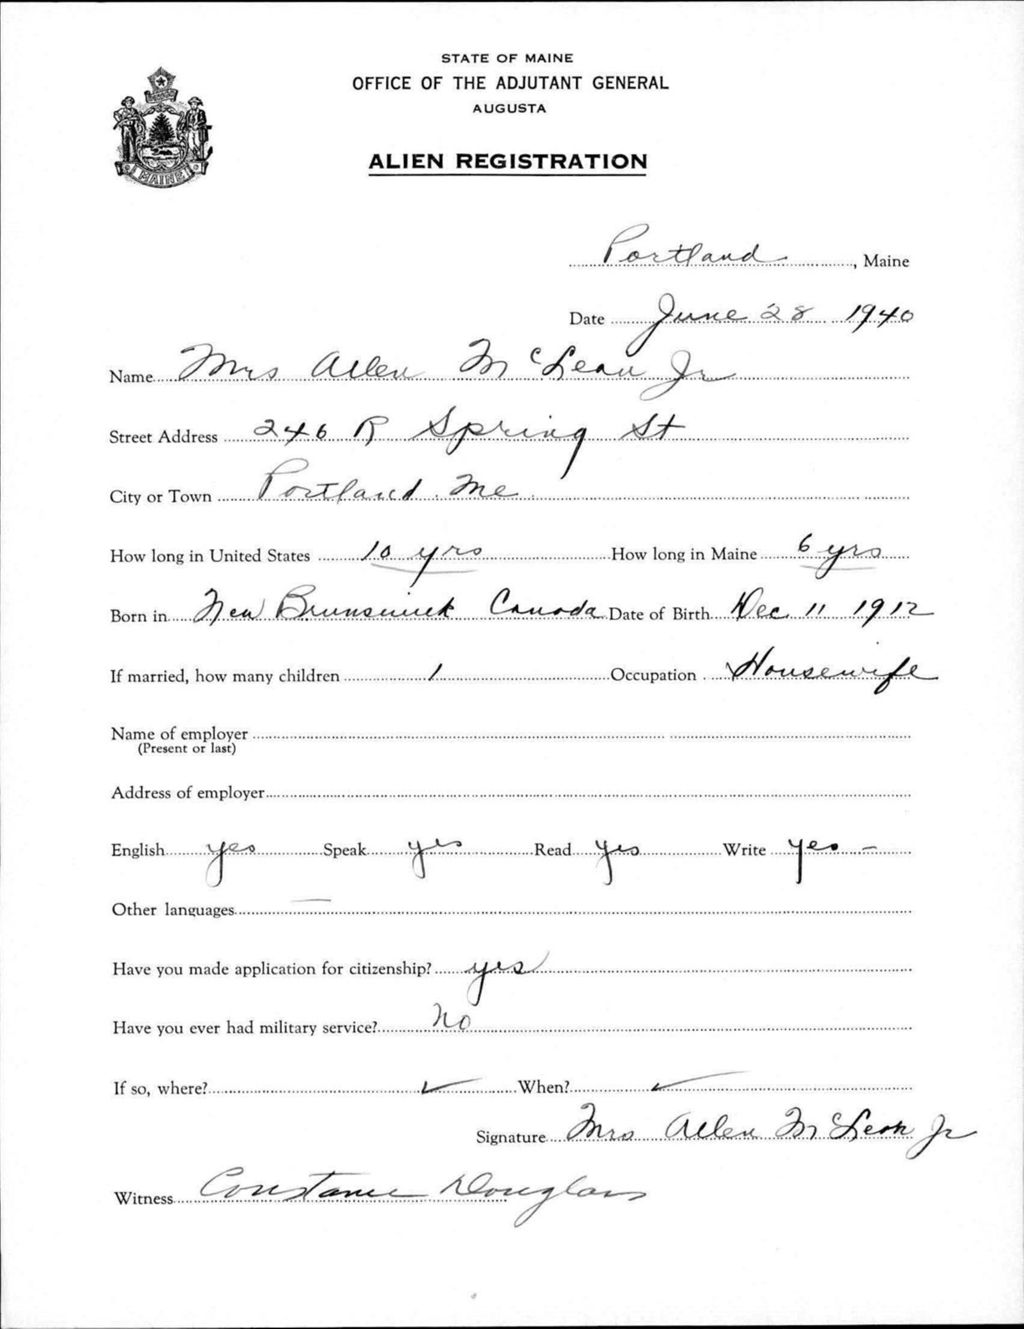 STATE OF MAINE
OFFICE OF THE ADJUTANT GENERAL
AUGUSTA
ALIEN REGISTRATION
MAINE
Portland, Maine
Date June 28 1940
Name Mrs Allen McLean Jr
Street Address 246 R Spring St
City or Town Portland Me.
How long in United States 10 yrs How long in Maine 6 yrs
Born in New Brunswick Canada Date of Birth Dec 11 1912
If married, how many children 1 Occupation Housewife
Name of employer
(Present or last)
Address of employer
English yes Speak yes Read yes Write yes -
Other languages —
Have you made application for citizenship? yes
Have you ever had military service? No
If so, where? ✓ When? ✓
Signature Mrs Allen McLean Jr
Witness Constance Douglass